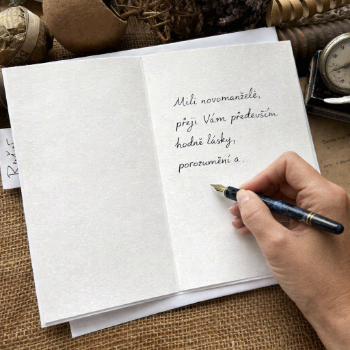 Milí novomanželé,
přeji Vám především
hodně lásky,
porozumění a